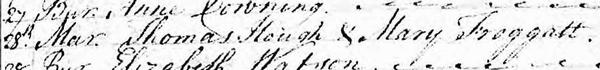 27 Bur. Anne Downing.
28th Mar. Thomas Hough & Mary Froggatt.
Bur. Elizabeth Watson